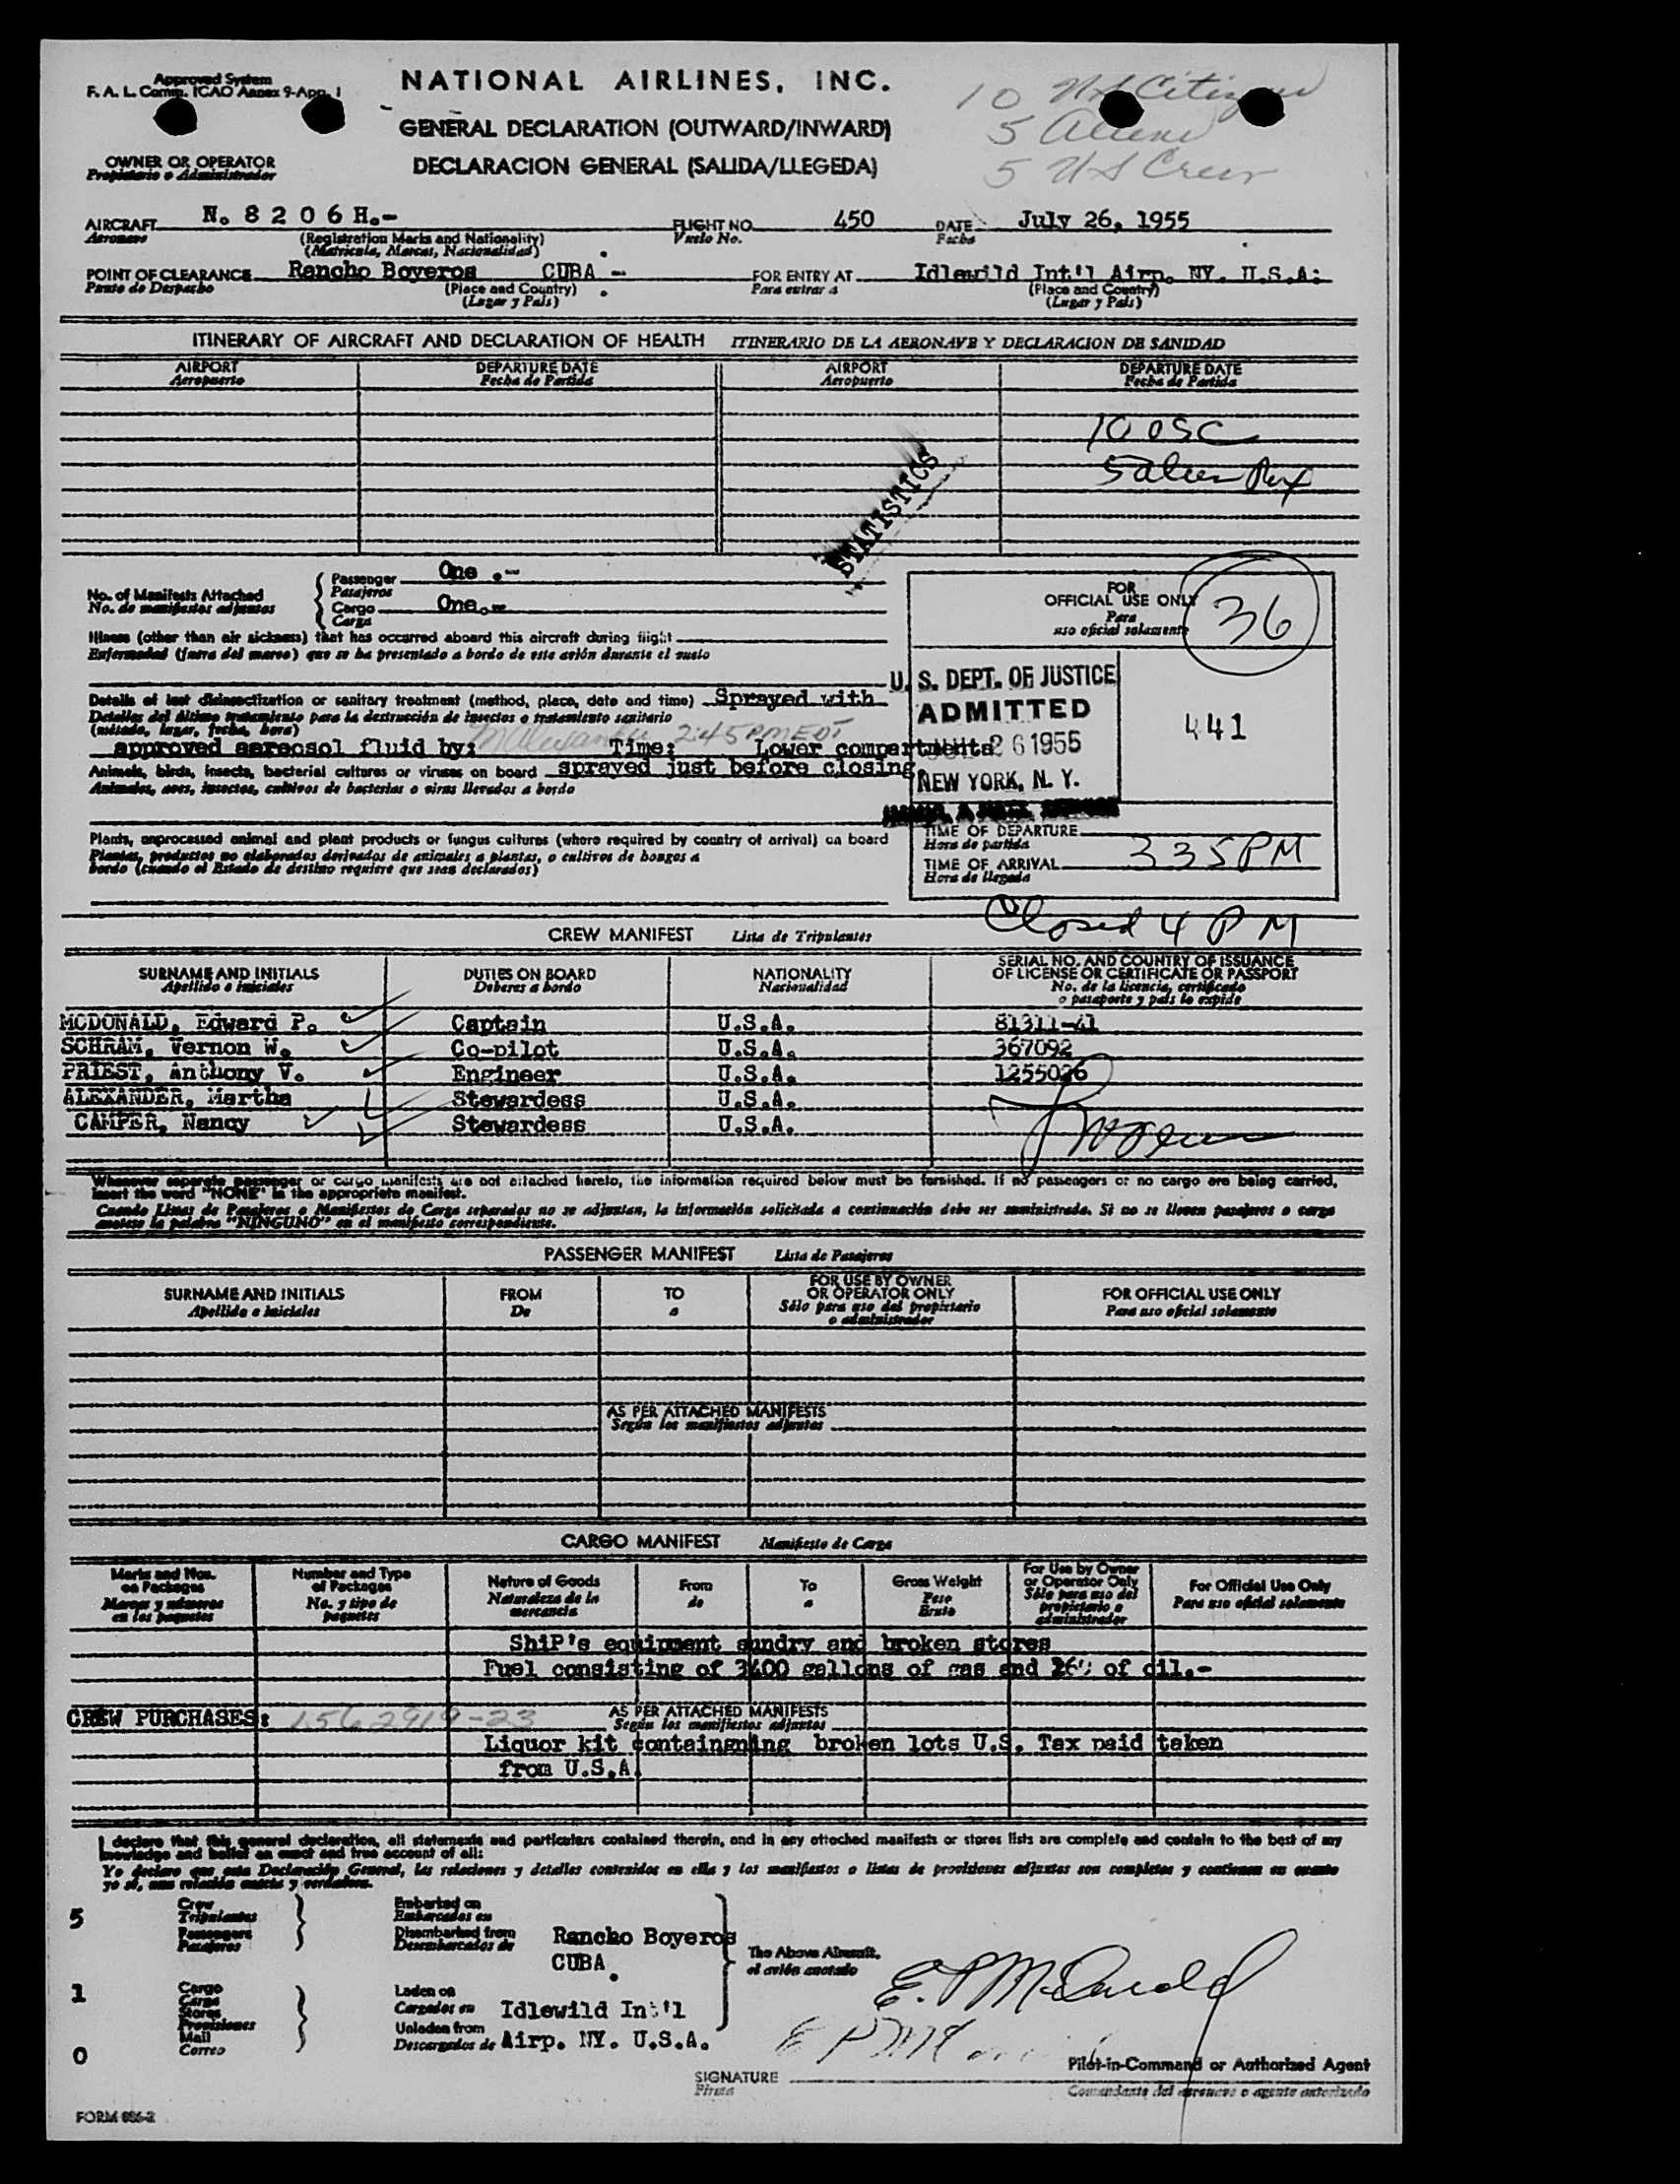 Approved System
F. A. L. Comm. ICAO Annex 9-App. 1
NATIONAL AIRLINES, INC.
10 US Citizens
GENERAL DECLARATION (OUTWARD/INWARD)
5 Aliens
OWNER OR OPERATOR
Propietario o Administrador
DECLARACION GENERAL (SALIDA/LLEGEDA)
5 US Crew
AIRCRAFT N. 8 2 0 6 H.- FLIGHT NO. 450 DATE July 26, 1955
Aeronave (Registration Marks and Nationality) Vuelo No. Fecha
(Matricula, Marcas, Nacionalidad)
POINT OF CLEARANCE Rancho Boyeros CUBA - FOR ENTRY AT Idlewild Int'l Airp. NY. U.S.A.
Punto de Despacho (Place and Country) Para entrar a (Place and Country)
(Lugar y País) (Lugar y País)
ITINERARY OF AIRCRAFT AND DECLARATION OF HEALTH ITINERARIO DE LA AERONAVE Y DECLARACION DE SANIDAD
AIRPORT DEPARTURE DATE AIRPORT DEPARTURE DATE
Aeropuerto Fecha de Partida Aeropuerto Fecha de Partida
10 USC
5 alien
STATISTICS
No. of Manifests Attached
No. de manifiestos adjuntos
Passenger One .-
Pasajeros
Cargo One.-
Carga
FOR
OFFICIAL USE ONLY
Para
uso oficial solamente
36
Illness (other than air sickness) that has occurred aboard this aircraft during flight
Enfermedad (fuera del mareo) que se ha presentado a bordo de este avión durante el vuelo
U. S. DEPT. OF JUSTICE
ADMITTED
26 1955
NEW YORK, N. Y.
441
Details of last disinsectization or sanitary treatment (method, place, date and time) Sprayed with
Detalles del último tratamiento para la destrucción de insectos o tratamiento sanitario
(método, lugar, fecha, hora)
approved aareosol fluid by: M Alexander Time: 2:45 PM EDT Lower compartments
Animals, birds, insects, bacterial cultures or viruses on board sprayed just before closing.
Animales, aves, insectos, cultivos de bacterias o virus llevados a bordo
Plants, unprocessed animal and plant products or fungus cultures (where required by country of arrival) on board
Plantas, productos no elaborados derivados de animales a plantas, o cultivos de hongos a
bordo (cuando el Estado de destino requiere que sean declarados)
TIME OF DEPARTURE
Hora de partida
TIME OF ARRIVAL 335 PM
Hora de llegada
Closed 4 PM
CREW MANIFEST Lista de Tripulantes
SURNAME AND INITIALS DUTIES ON BOARD NATIONALITY SERIAL NO. AND COUNTRY OF ISSUANCE
OF LICENSE OR CERTIFICATE OR PASSPORT
Apellido e iniciales Deberes a bordo Nacionalidad No. de la licencia, certificado
o pasaporte y país lo expide
MCDONALD, Edward P. Captain U.S.A. 81311-41
SCHRAM, Vernon W. Co-pilot U.S.A. 367092
PRIEST, Anthony V. Engineer U.S.A. 1255026
ALEXANDER, Martha Stewardess U.S.A.
CAMPER, Nancy Stewardess U.S.A.
Whenever separate passenger or cargo manifests are not attached hereto, the information required below must be furnished. If no passengers or no cargo are being carried,
insert the word "NONE" in the appropriate manifest.
Cuando Listas de Pasajeros o Manifiestos de Carga separados no se adjuntan, la información solicitada a continuación debe ser suministrada. Si no se llevan pasajeros o carga
anotese la palabra "NINGUNO" en el manifiesto correspondiente.
PASSENGER MANIFEST Lista de Pasajeros
SURNAME AND INITIALS FROM TO FOR USE BY OWNER
OR OPERATOR ONLY FOR OFFICIAL USE ONLY
Apellido e iniciales De a Sólo para uso del propietario
o administrador Para uso oficial solamente
AS PER ATTACHED MANIFESTS
Según los manifiestos adjuntos
CARGO MANIFEST Manifiesto de Carga
Marks and Nos.
on Packages
Marcas y números
en los paquetes
Number and Type
of Packages
No. y tipo de
paquetes
Nature of Goods
Naturaleza de la
mercancía
From
de
To
a
Gross Weight
Peso
Bruto
For Use by Owner
or Operator Only
Sólo para uso del
propietario o
administrador
For Official Use Only
Para uso oficial solamente
ShiP's equipment sundry and broken stores
Fuel consisting of 3400 gallons of gas and of oil.-
CREW PURCHASES: 1562919-23 AS PER ATTACHED MANIFESTS
Según los manifiestos adjuntos
Liquor kit containgning broken lots U.S. Tax paid taken
from U.S.A.
I declare that this general declaration, all statements and particulars contained therein, and in any attached manifests or stores lists are complete and contain to the best of my
knowledge and belief an exact and true account of all:
Yo declaro que esta Declaración General, las relaciones y detalles contenidos en ella y los manifiestos o listas de provisiones adjuntas son completos y contienen en cuanto
yo sé, una relación exacta y verdadera.
5
Crew
Tripulantes
Passengers
Pasajeros
Embarked on
Embarcados en
Disembarked from
Desembarcados de
Rancho Boyeros
CUBA.
The Above Aircraft.
el avión anotado
1
Cargo
Carga
Stores
Provisiones
Mail
Correo
0
Laden on
Cargados en
Unladen from
Descargados de
Idlewild Int'l
Airp. NY. U.S.A.
E. P. McDonald
SIGNATURE
Firma
Pilot-in-Command or Authorized Agent
Comandante del aeronave o agente autorizado
FORM 886-2